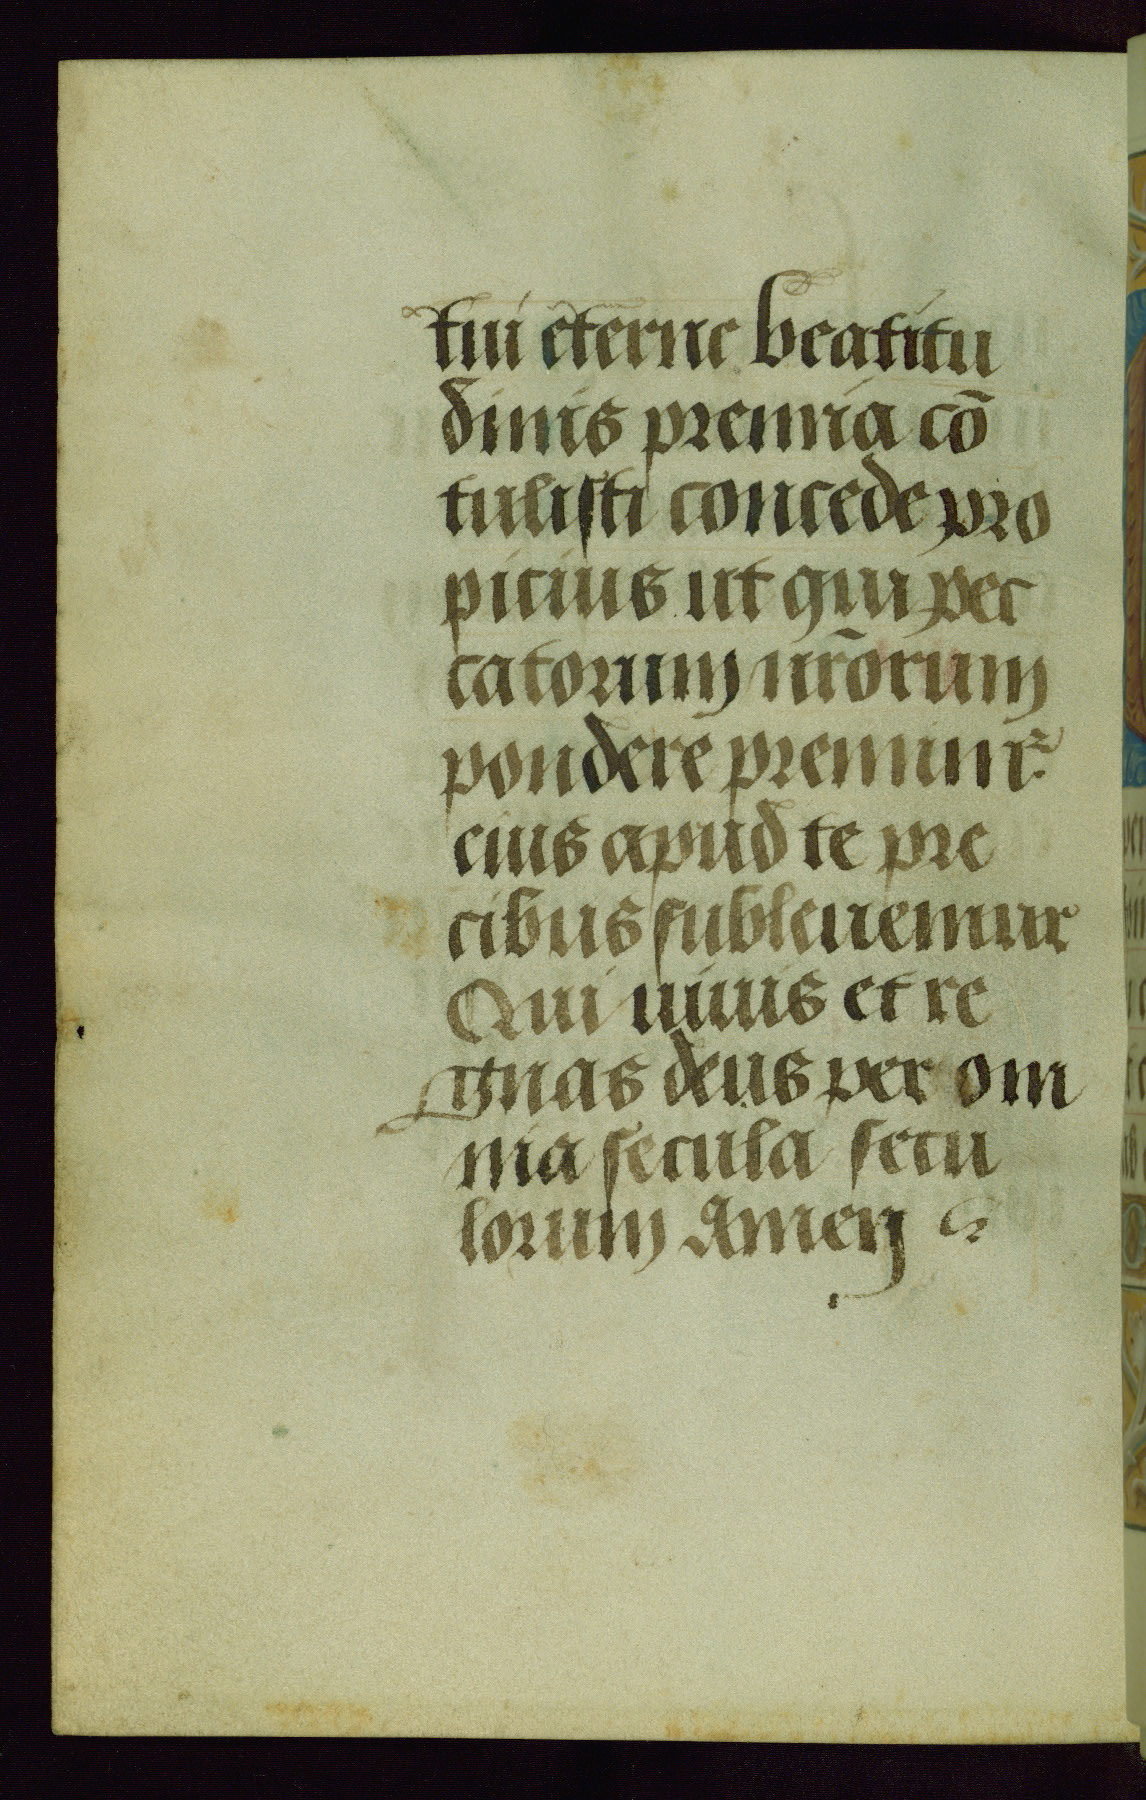 tui eterne beatitu
dinis premia cō
tulisti concede pro
picius ut qui pec
catorum nr̄orum
pondere premimr᷑
eius apud te pre
cibus subleuemur
Qui uiuis et re
gnas deus per om
nia secula secu
lorum Amen